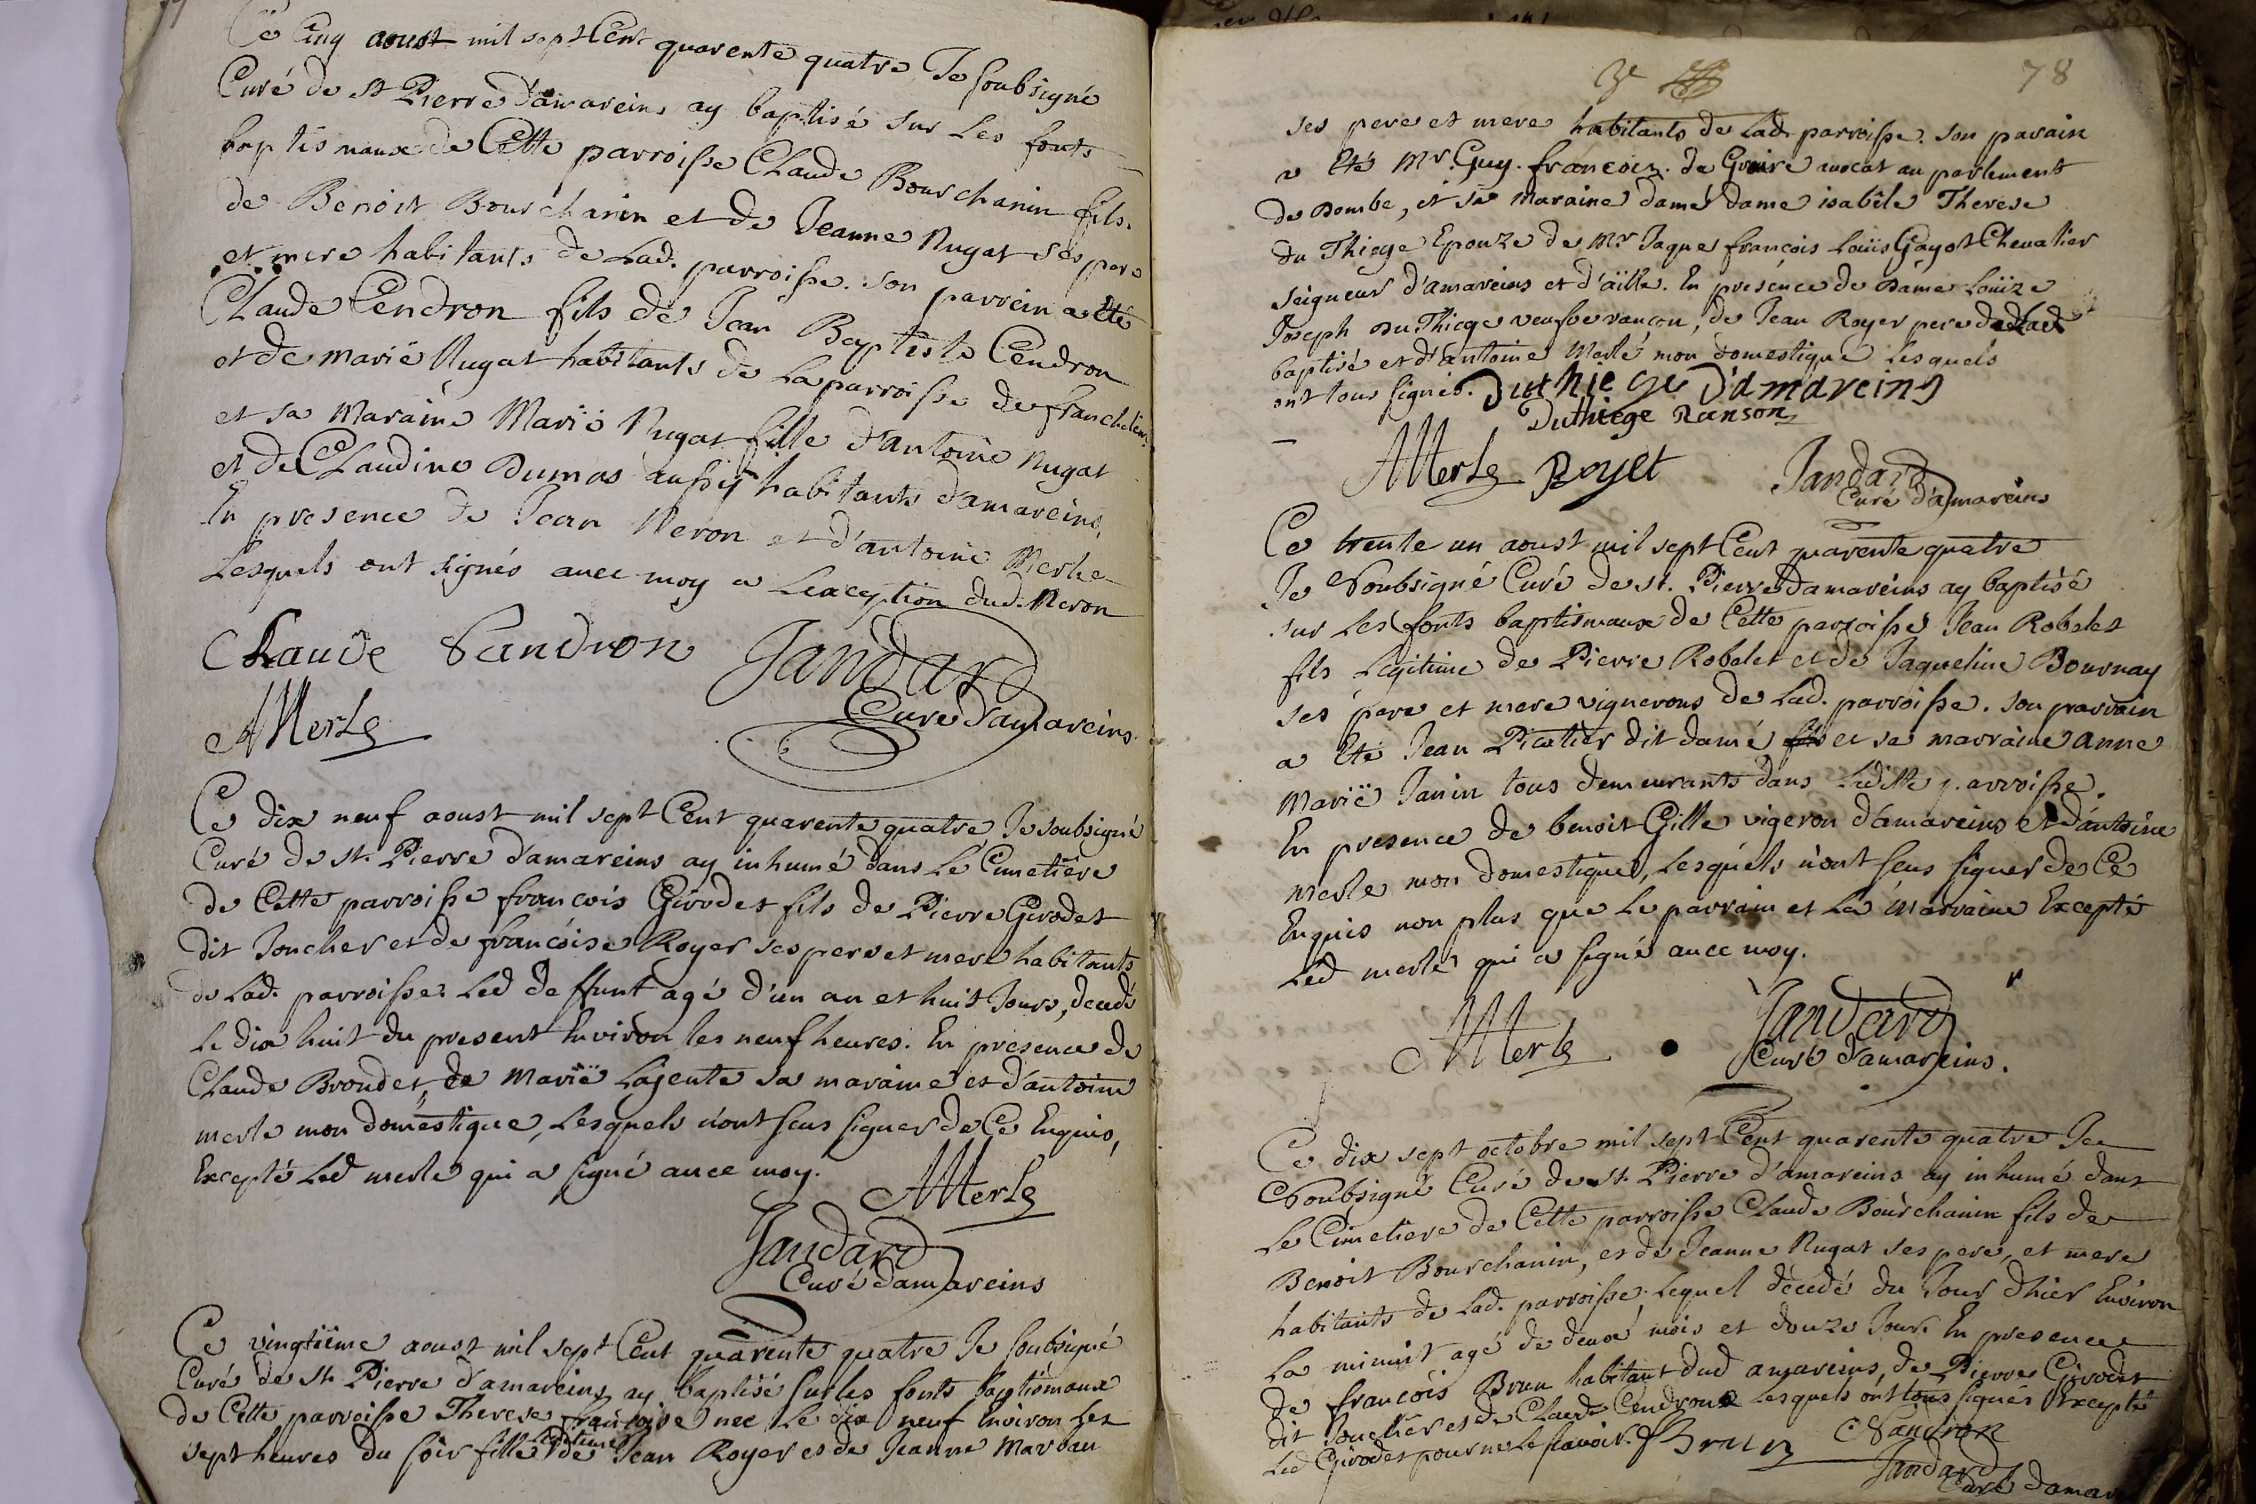 Ce Cinq aoust mil sept Cent quarente quatre Je soubsigné
Curé de st Pierre d'amareins ay baptisé sur Les fonts
baptismaux de Cette parroisse Claude Bourchanin fils
de Benoist Bourchanin et de Jeanne Nugat ses pere
et mere habitants de Lad. parroisse. son parrein a Eté
Claude Cendron fils de Jean Baptiste Cendron
et de marië Nugat habitants de La parroisse de francheleins
et sa Maraine Marië Nugat fille d'antoine Nugat
et de Claudine Dumas aussÿ habitants d'amareins,
En presence de Jean Neron et d'antoine Merle
Lesquels ont signés avec moy a Lexception dud. Neron
Claude Sandron Jandard
Curé d'amareins
AMerle
Ce dix neuf aoust mil sept Cent quarente quatre Je soubsigné
Curé de st. Pierre d'amareins ay inhumé dans Le Cimetiere
de Cette parroisse francois Girodet fils de Pierre Girodet
dit Joucher et de francoise Royer ses pere et mere habitants
de Lad. parroisse. Led deffunt agé d'un an et huit Jours, decedé
Le dix huit du present Environ les neuf heures. En presence de
Claude Broudet, de Marië Lajente sa maraine et d'antoine
merle mon domestique, Lesquels n'ont sceus signer de Ce Enquis,
Excepté Led merle qui a signé avec moy.
AMerle
Jandard
Curé damareins
Ce vingtiême aoust mil sept Cent quarente quatre Je soubsigné
Curé de st. Pierre d'amareins ay baptisé sur les fonts baptismaux
de Cette parroisse Therese francoise nee Le dix neuf Environ Les
sept heures du soir fille Legitime de Jean Royer et de Jeanne Mardau
78
ses pere et mere habitants de Lad. parroisse. son parain
a Eté Mr. Guy. francois. de Gruire avocat au parlement
de Dombe, et sa Maraine damé dame isabêle Therese
du Thiege Epouze de Mr Jaque francois Loüis Gayot Chevalier
seigneur d'amareins et d'aïlle. En présence de Dame Loüize
Joseph Du Thiege veufve rançon, de Jean Royer pere de Lad
baptisé et d'antoine Merle mon domestique Lesquels
ont tous signés. Duthiege D'amareins
Duthiege Ranson
AMerle Royet Jandard
Curé d'amareins
Ce trente un aoust mil sept Cent quarente quatre
Je Soubsigné Curé de st. Pierre damareins ay baptisé
sur Les fonts baptismaux de Cette parroisse Jean Robelet
fils Legitime de Pierre Robelet et de Jaqueline Bournay
ses pere et mere vignerons de Lad. parroisse. son parrain
a Eté Jean Picatier dit damé et sa marraine anne
Marië Janin tous demeurants dans Laditte parroisse.
En presence de benoit Gille vigeron d'amareins et d'antoine
merle mon domestique, Lesquels n'ont sceus signer de Ce
Enquis non plus que Le parrain et La Marraine Excepté
Led merle qui a signé avec moy.
AMerle Jandard
Curé d'amareins.
Ce dix sept octobre mil sept Cent quarente quatre Je
Soubsigné Curé de st. Pierre d'amareins ay inhumé dans
Le Cimetiere de Cette parroisse Claude Bourchanin fils de
Benoit Bourchanin, et de Jeanne Nugat ses pere, et mere
habitants de Lad. parroisse. Lequel décedé du Jour d'hier Environ
La minuit agé de deux mois et douze Jours. En presence
de francois Brun habitant dud amareins, de Pierre Girodet
dit Joucher et de Claude Cendron Lesquels ont tous signés Excepté
Led Girodet pour ne Le scavoir. fBrun Sandron
Jandard
Curé damar